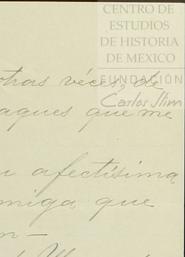 CENTRO DE
ESTUDIOS
DE HISTORIA
DE MEXICO
FUNDACIÓN
Carlos Slim
otras véces, de
aques que me
u afectísima
miga que